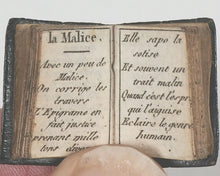 la Malice.
Avec un peu de
Malice.
On corrige les
travers
L'Epigrame en
fait justice
prenant mille
tons
Elle sape la
sotise
Et souvent un
trait malin
Quand c'est l'espr
qui l'aiguise
Eclaire le genre
humain.